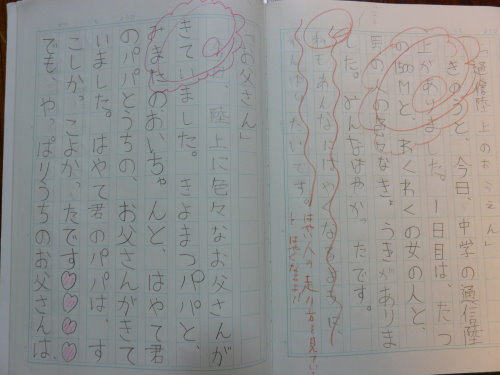 「通信陸上のおうえん」
きのうと、今日、中学の通信陸
上がありました。1日目は、たつ
の1500Mと、わくわくの女の人と、
男の人の色々なきょうぎがありま
した。みんなはやかったです。
わもあんなにはやくなるように、
がんばりたいです。
「お父さん」
陸上に色々なお父さんが
きていました。きよまつパパと、
みまたのおいちゃんと、はやて君
のパパとうちの、お父さんがきて
いました。はやて君のパパは、す
こしかっこよかったです♡♡♡♡
でも、やっぱりうちのお父さんは、